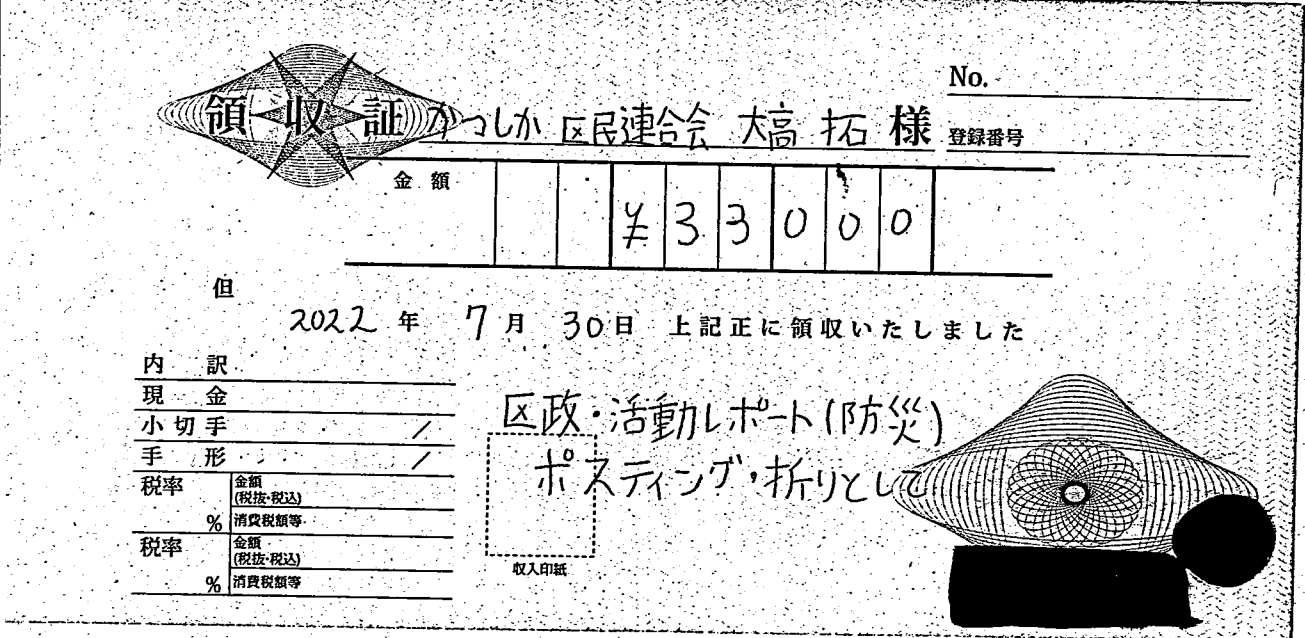 No.
領収証 かつしか区民連合会 大高 拓 様 登録番号
金額 ¥33000
但
2022年 7月 30日 上記正に領収いたしました
内訳
現金
小切手 /
手形 /
税率 % 金額(税抜・税込)
消費税額等
税率 % 金額(税抜・税込)
消費税額等
区政・活動レポート(防災)
ポスティング・折りとして
収入印紙